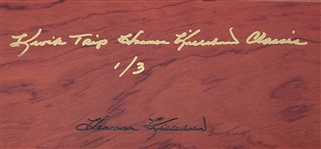 Kwik Trip Harmon Killebrew Classic
1/3
Harmon Killebrew